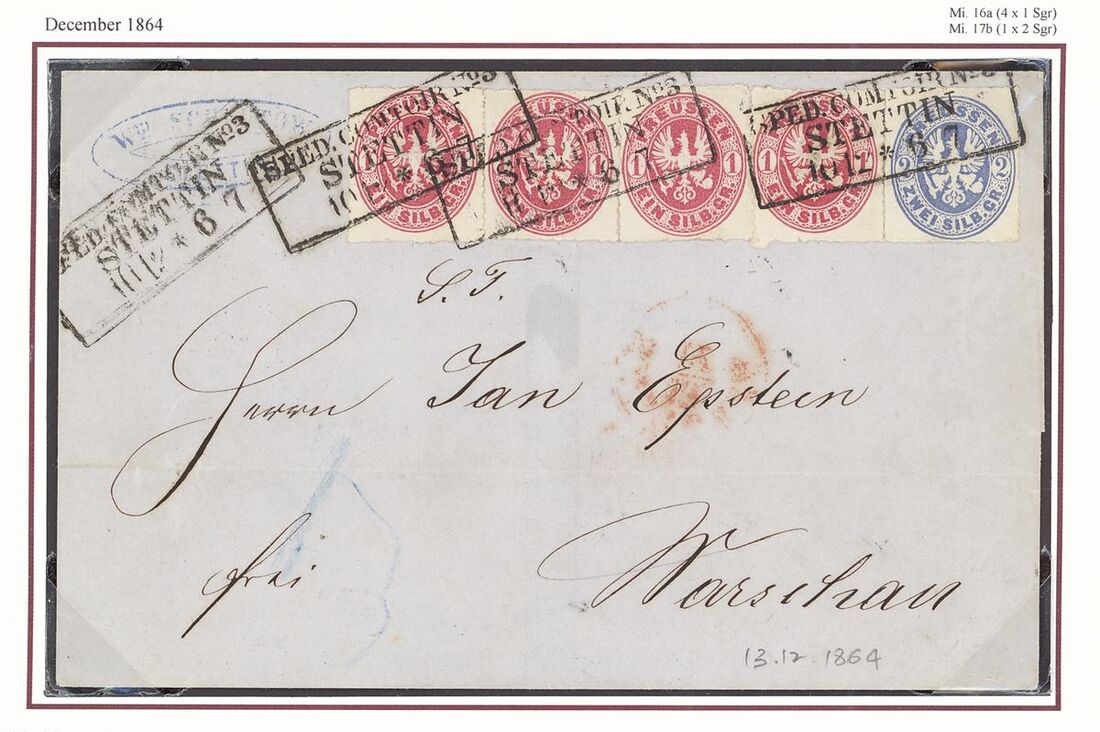 December 1864
Mi. 16a (4 x 1 Sgr)
Mi. 17b (1 x 2 Sgr)
SPED. COMTOIR No 3
STETTIN
10 12 * 6 7
SPED. COMTOIR No 3
STETTIN
10 12 * 6 7
STETTIN
10 12 * 6 7
SPED. COMTOIR No 3
STETTIN
10 12 * 6 7
PREUSSEN
1 1
EIN SILB. GR.
PREUSSEN
1 1
EIN SILB. GR.
PREUSSEN
1 1
EIN SILB. GR.
PREUSSEN
1 1
EIN SILB. GR.
PREUSSEN
2 2
ZWEI SILB. GR.
S. T.
Herrn Jan Epstein
frei Warschau
13.12 1864